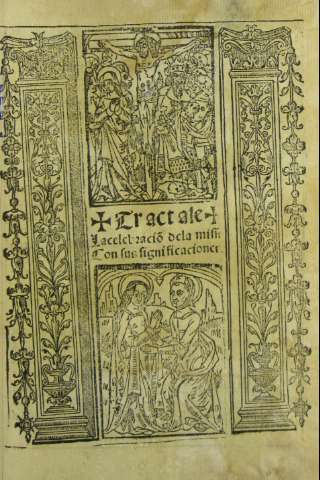 ✠ Tractase ✠
La celebraciõ dela missa
Con sus significaciones